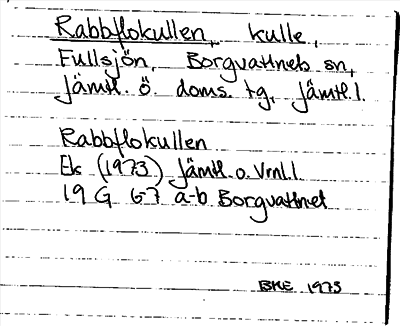 Rabbflokullen, kulle,
Fullsjön, Borgvattnets sn,
Jämtl. ö. doms. tg, Jämtl. l.
Rabbflokullen
Ek (1973) Jämtl. o. Vrnl. l.
19 G 6-7 a-b Borgvattnet
BKE 1975